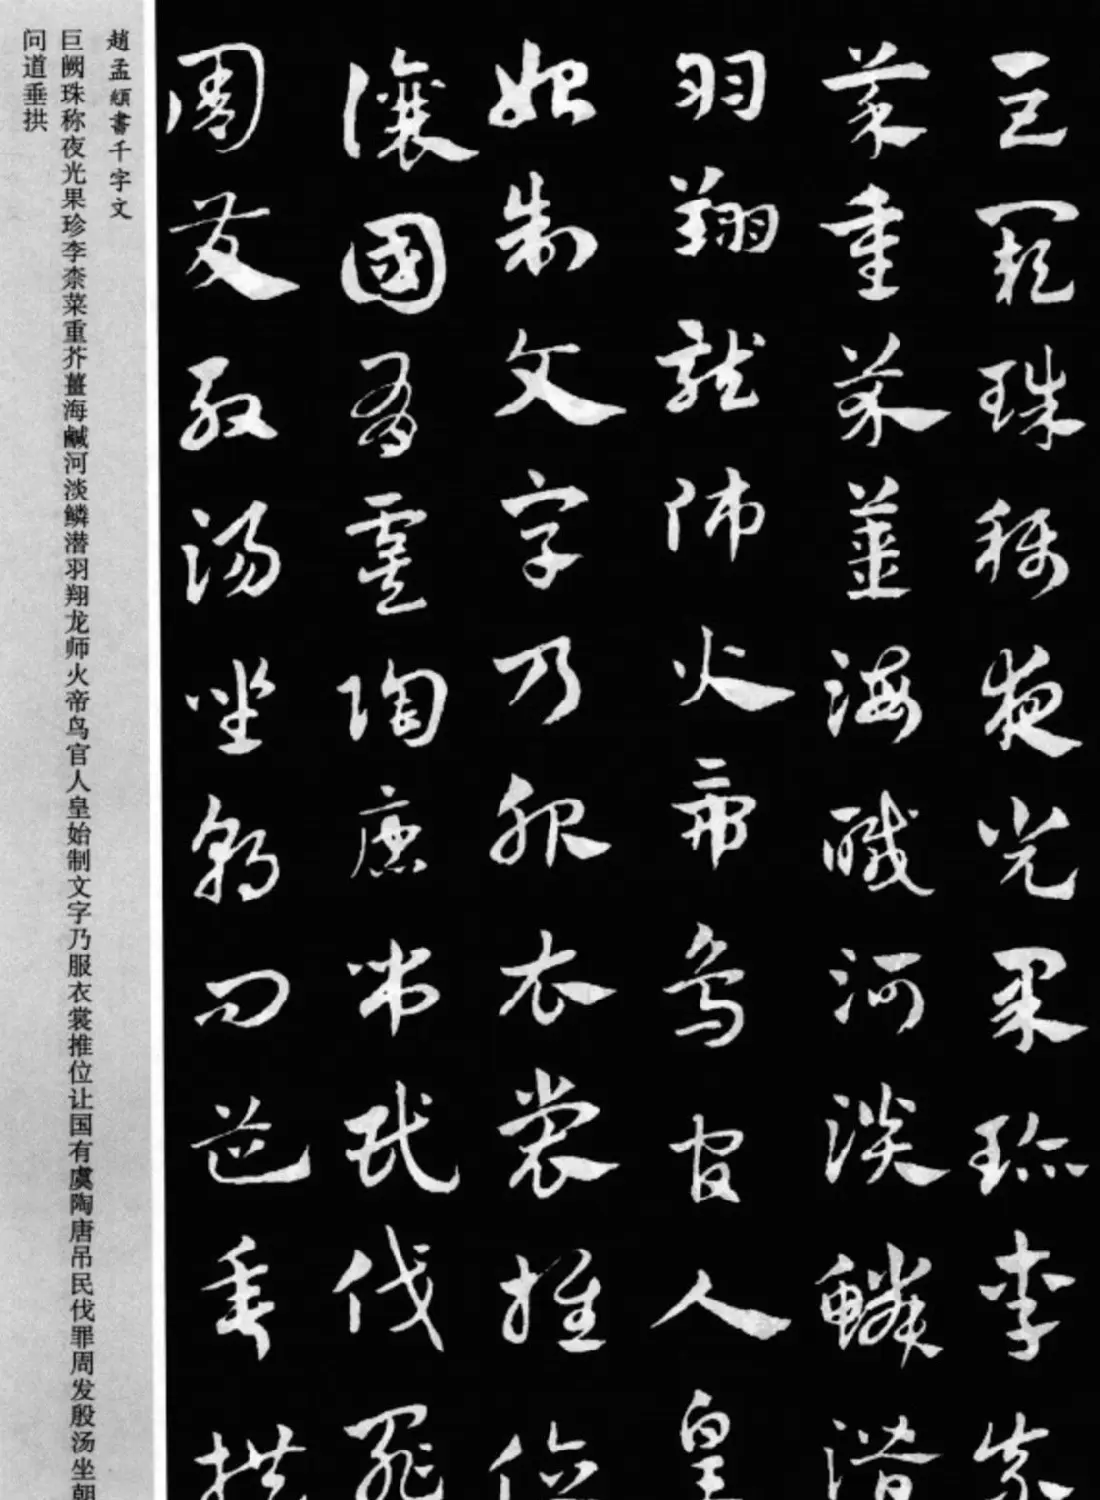 巨闕珠稱夜光果珍李柰
菜重芥薑海鹹河淡鱗潛
羽翔龍師火帝鳥官人皇
始制文字乃服衣裳推位
讓國有虞陶唐弔民伐罪
周發殷湯坐朝問道垂拱
趙孟頫書千字文
巨阙珠称夜光果珍李柰菜重芥薑海鹹河淡鳞潜羽翔龙师火帝鸟官人皇始制文字乃服衣裳推位让国有虞陶唐吊民伐罪周发殷汤坐朝
问道垂拱